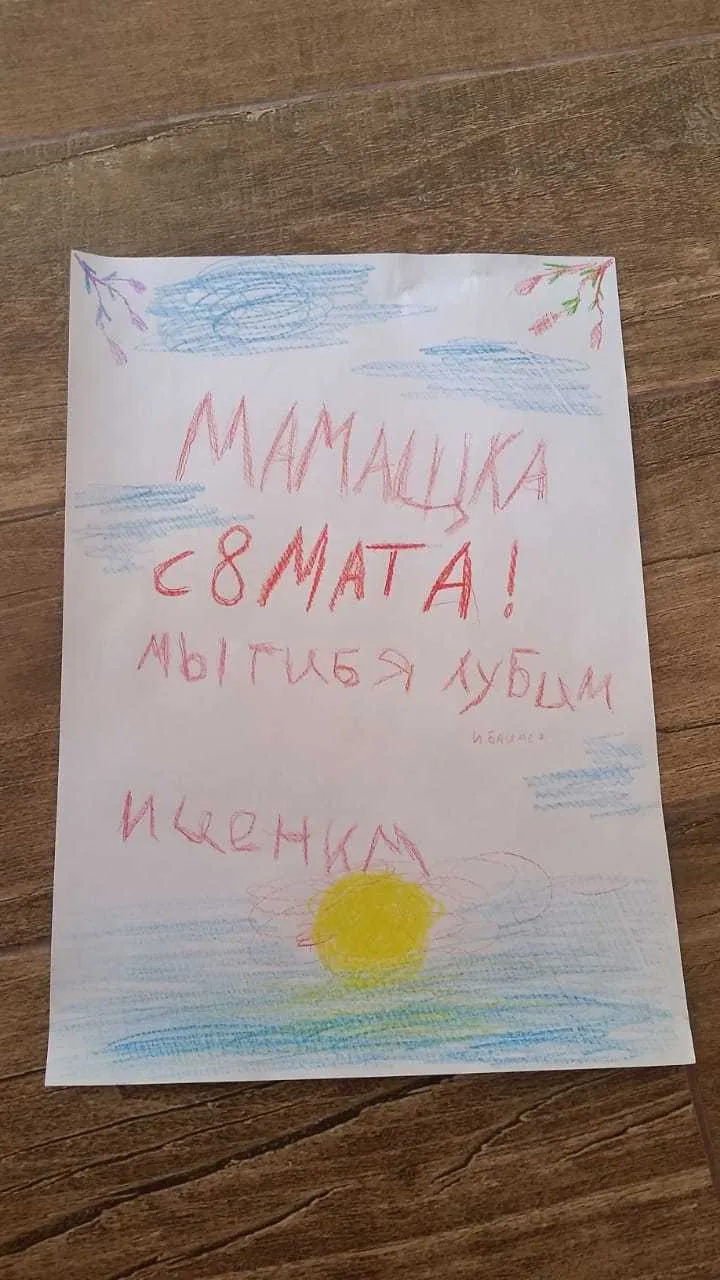 МАМАЩКА
С 8 МАТА!
МЫ ТИБЯ ЛУБИМ
И БАИМСЯ
ИЦЕНКМ